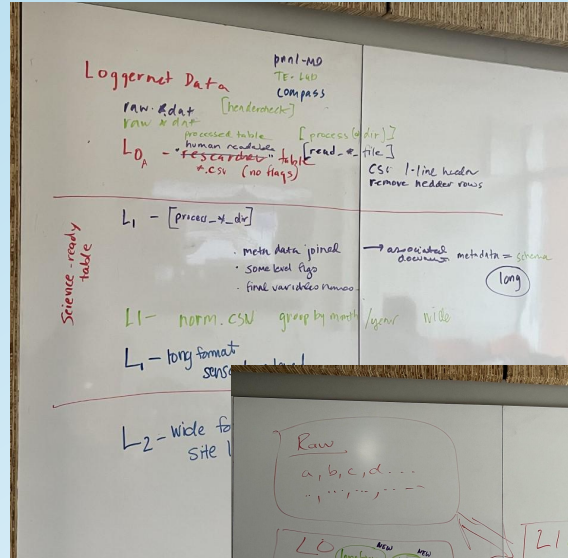 pnnl-MD
TE-
Compass
Loggernet Data
raw *.dat [headercheck]
raw *.dat
processed table [process(*dir)]
"human readable
L0A - "researcher" table [read_*_file]
*.csv (no flags)
CSV 1-line header
remove hedder rows
Science-ready
table
L1 - [process_*_dir]
· meta data joined → associated
metadata = schema
· some level figs
long
· final variables
L1- norm.csv group by month/year wide
L1 - long format
L2 - wide
site
Raw
a, b, c, d ...
L0
NEW
NEW
L1